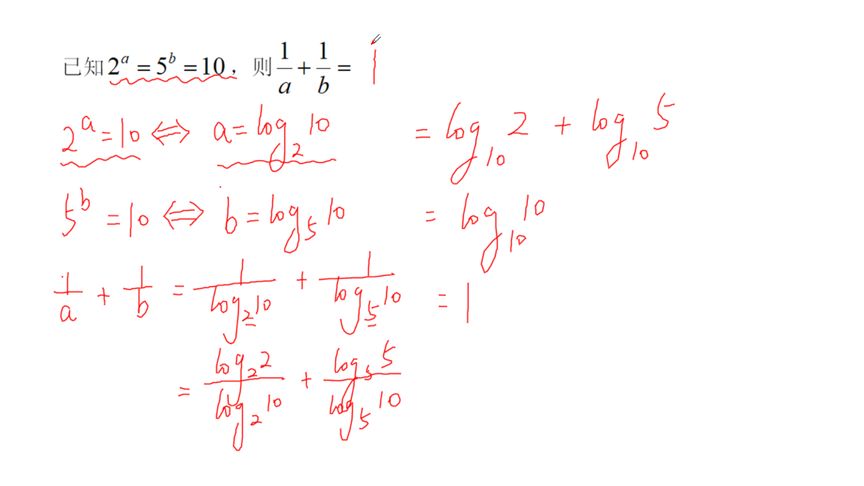 已知 2^a = 5^b = 10，则 1/a + 1/b = 1
2^a = 10 ⇔ a = log_2 10
5^b = 10 ⇔ b = log_5 10
1/a + 1/b = 1/(log_2 10) + 1/(log_5 10)
= (log_2 2)/(log_2 10) + (log_5 5)/(log_5 10)
= log_10 2 + log_10 5
= log_10 10
= 1